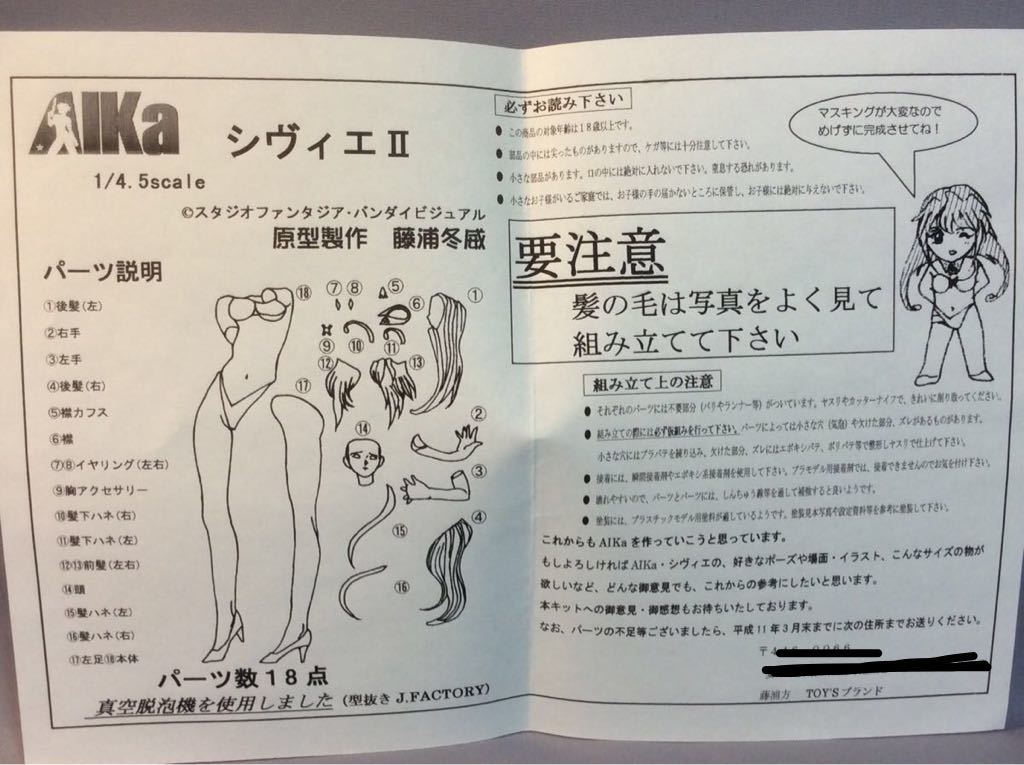 AIKa
シヴィエⅡ
1/4.5scale
©スタジオファンタジア・バンダイビジュアル
原型製作 藤浦冬威
パーツ説明
①後髪(左)
②右手
③左手
④後髪(右)
⑤襟カフス
⑥襟
⑦⑧イヤリング(左右)
⑨胸アクセサリー
⑩髪下ハネ(右)
⑪髪下ハネ(左)
⑫⑬前髪(左右)
⑭頭
⑮髪ハネ(左)
⑯髪ハネ(右)
⑰左足⑱本体
⑱
⑦⑧
⑤
⑥
①
⑨
⑩
⑪
⑫
⑬
⑰
②
⑭
③
⑮
④
⑯
パーツ数18点
真空脱泡機を使用しました(型抜きJ.FACTORY)
必ずお読み下さい
● この商品の対象年齢は18歳以上です。
● 部品の中には尖ったものがありますので、ケガ等には十分注意して下さい。
● 小さな部品があります。口の中には絶対に入れないで下さい。窒息する恐れがあります。
● 小さなお子様がいるご家庭では、お子様の手の届かないところに保管し、お子様には絶対に与えないで下さい。
マスキングが大変なので
めげずに完成させてね!
要注意
髪の毛は写真をよく見て
組み立てて下さい
組み立て上の注意
● それぞれのパーツには不要部分(バリやランナー等)がついています。ヤスリやカッターナイフで、きれいに削り取ってください。
● 組み立ての際には必ず仮組みを行って下さい。パーツによっては小さな穴(気泡)や欠けた部分、ズレがあるものがあります。
小さな穴にはプラパテを練り込み、欠けた部分、ズレにはエポキシパテ、ポリパテ等で整形しヤスリで仕上げて下さい。
● 接着には、瞬間接着剤やエポキシ系接着剤を使用して下さい。プラモデル用接着剤では、接着できませんのでお気を付け下さい。
● 壊れやすいので、パーツとパーツには、しんちゅう線等を通して補強すると良いようです。
● 塗装には、プラスチックモデル用塗料が適しているようです。塗装見本写真や設定資料等を参考に塗装して下さい。
これからもAIKaを作っていこうと思っています。
もしよろしければAIKa・シヴィエの、好きなポーズや場面・イラスト、こんなサイズの物が
欲しいなど、どんな御意見でも、これからの参考にしたいと思います。
本キットへの御意見・御感想もお待ちいたしております。
なお、パーツの不足等ございましたら、平成11年3月末までに次の住所までお送りください。
〒
藤浦方 TOY'Sブランド